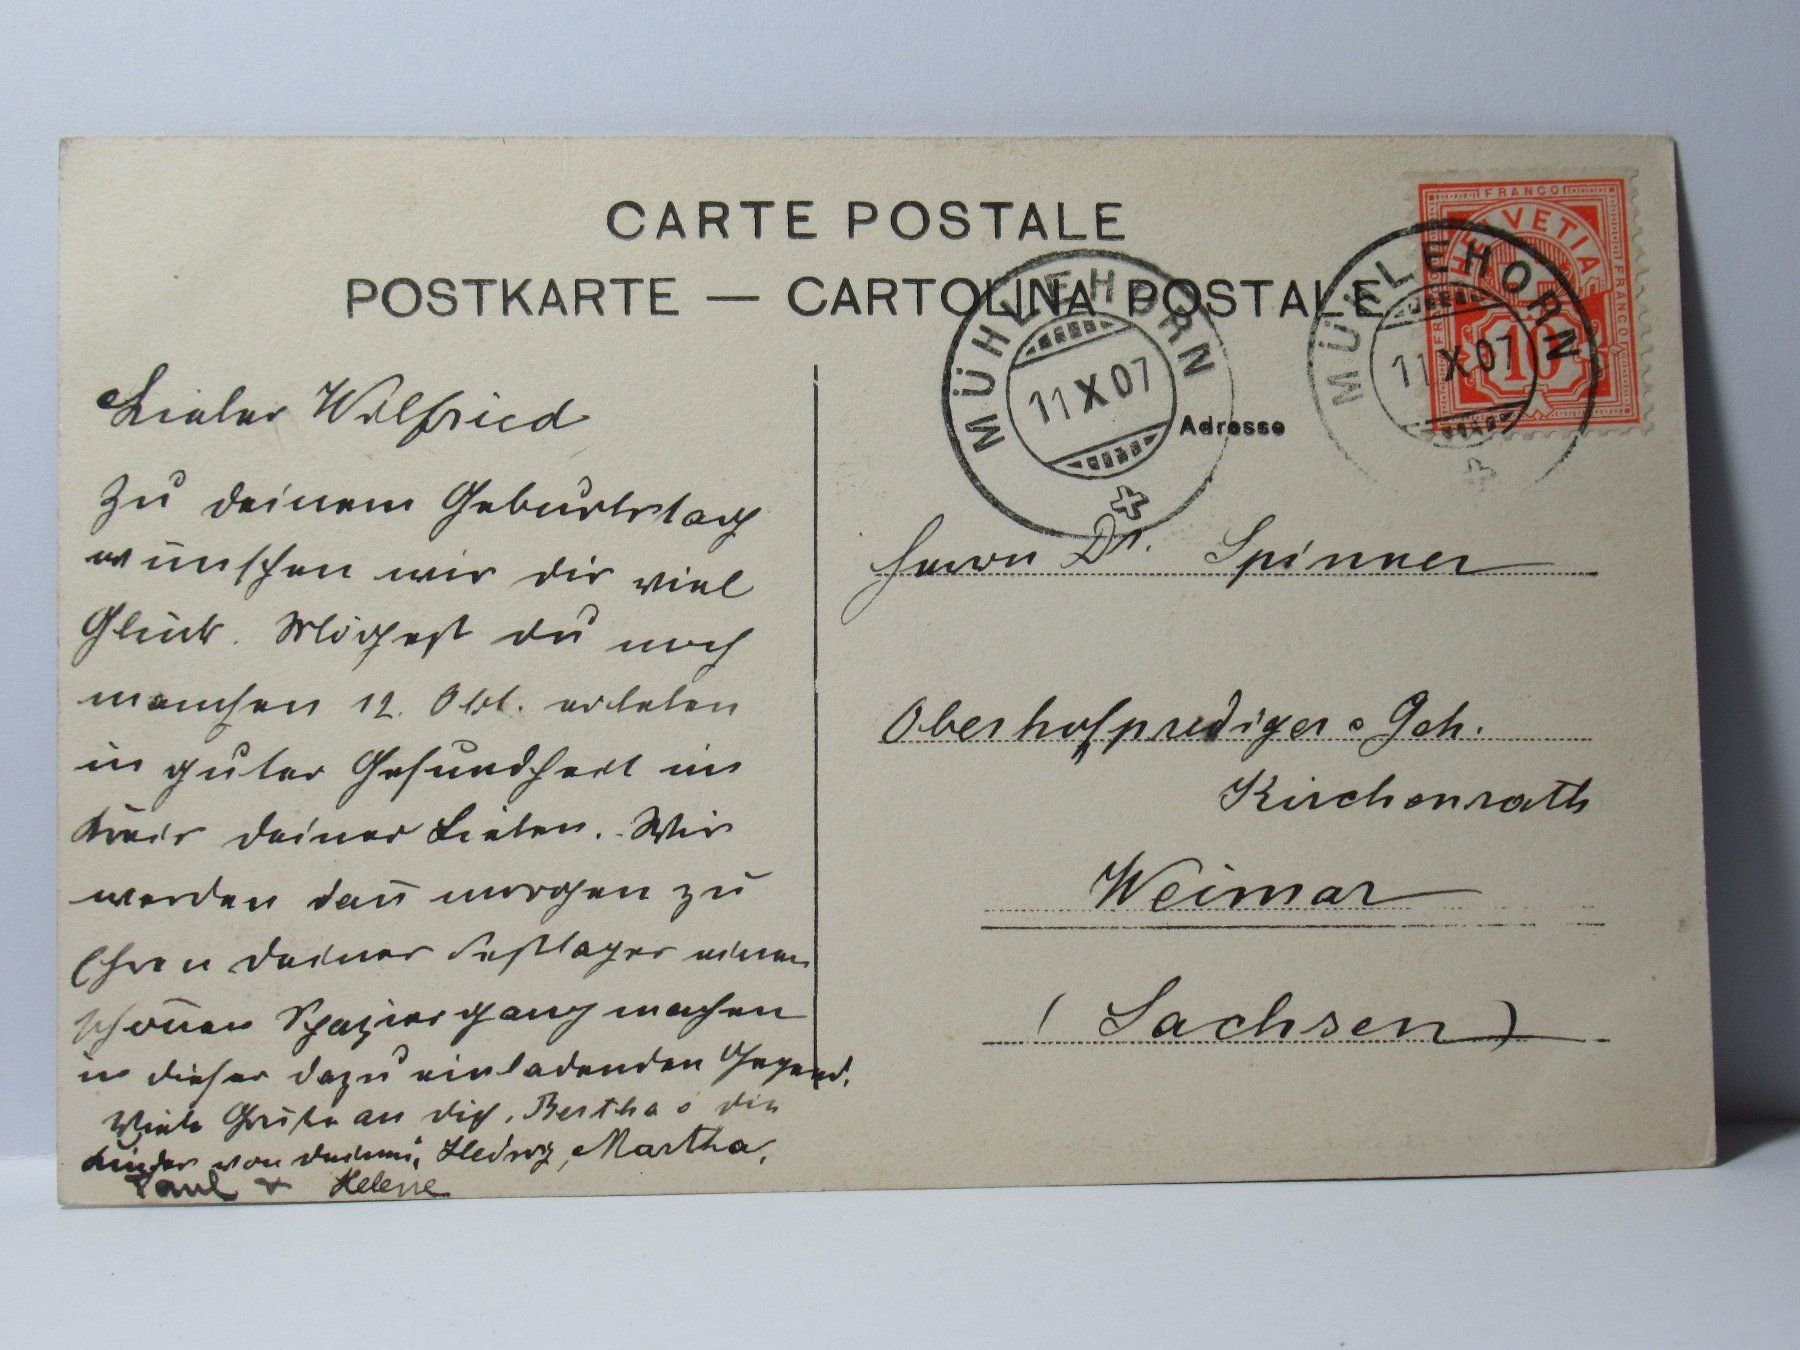 CARTE POSTALE
POSTKARTE — CARTOLINA POSTALE
FRANCO
HELVETIA
FRANCO
FRANCO
10
MÜHLEHORN
11 X 07
MÜHLEHORN
11 X 07
Adresse
Lieber Wilfried
Zu deinem Geburtstag
wünschen wir dir viel
Glück. Mögest du noch
manchen 12. Okt. erleben
in guter Gesundheit im
Kreis deiner Lieben. Wir
werden dañ morgen zu
Ehren deines Festtages einen
schönen Spaziergang machen
in dieser dazu einladenden Gegend.
Viele Grüße an dich, Bertha & die
Kinder von deinen Hedwig, Martha,
Paul & Helene
Herrn Dr. Spinner
Oberhofprediger & Geh.
Kirchenrath
Weimar
(Sachsen)